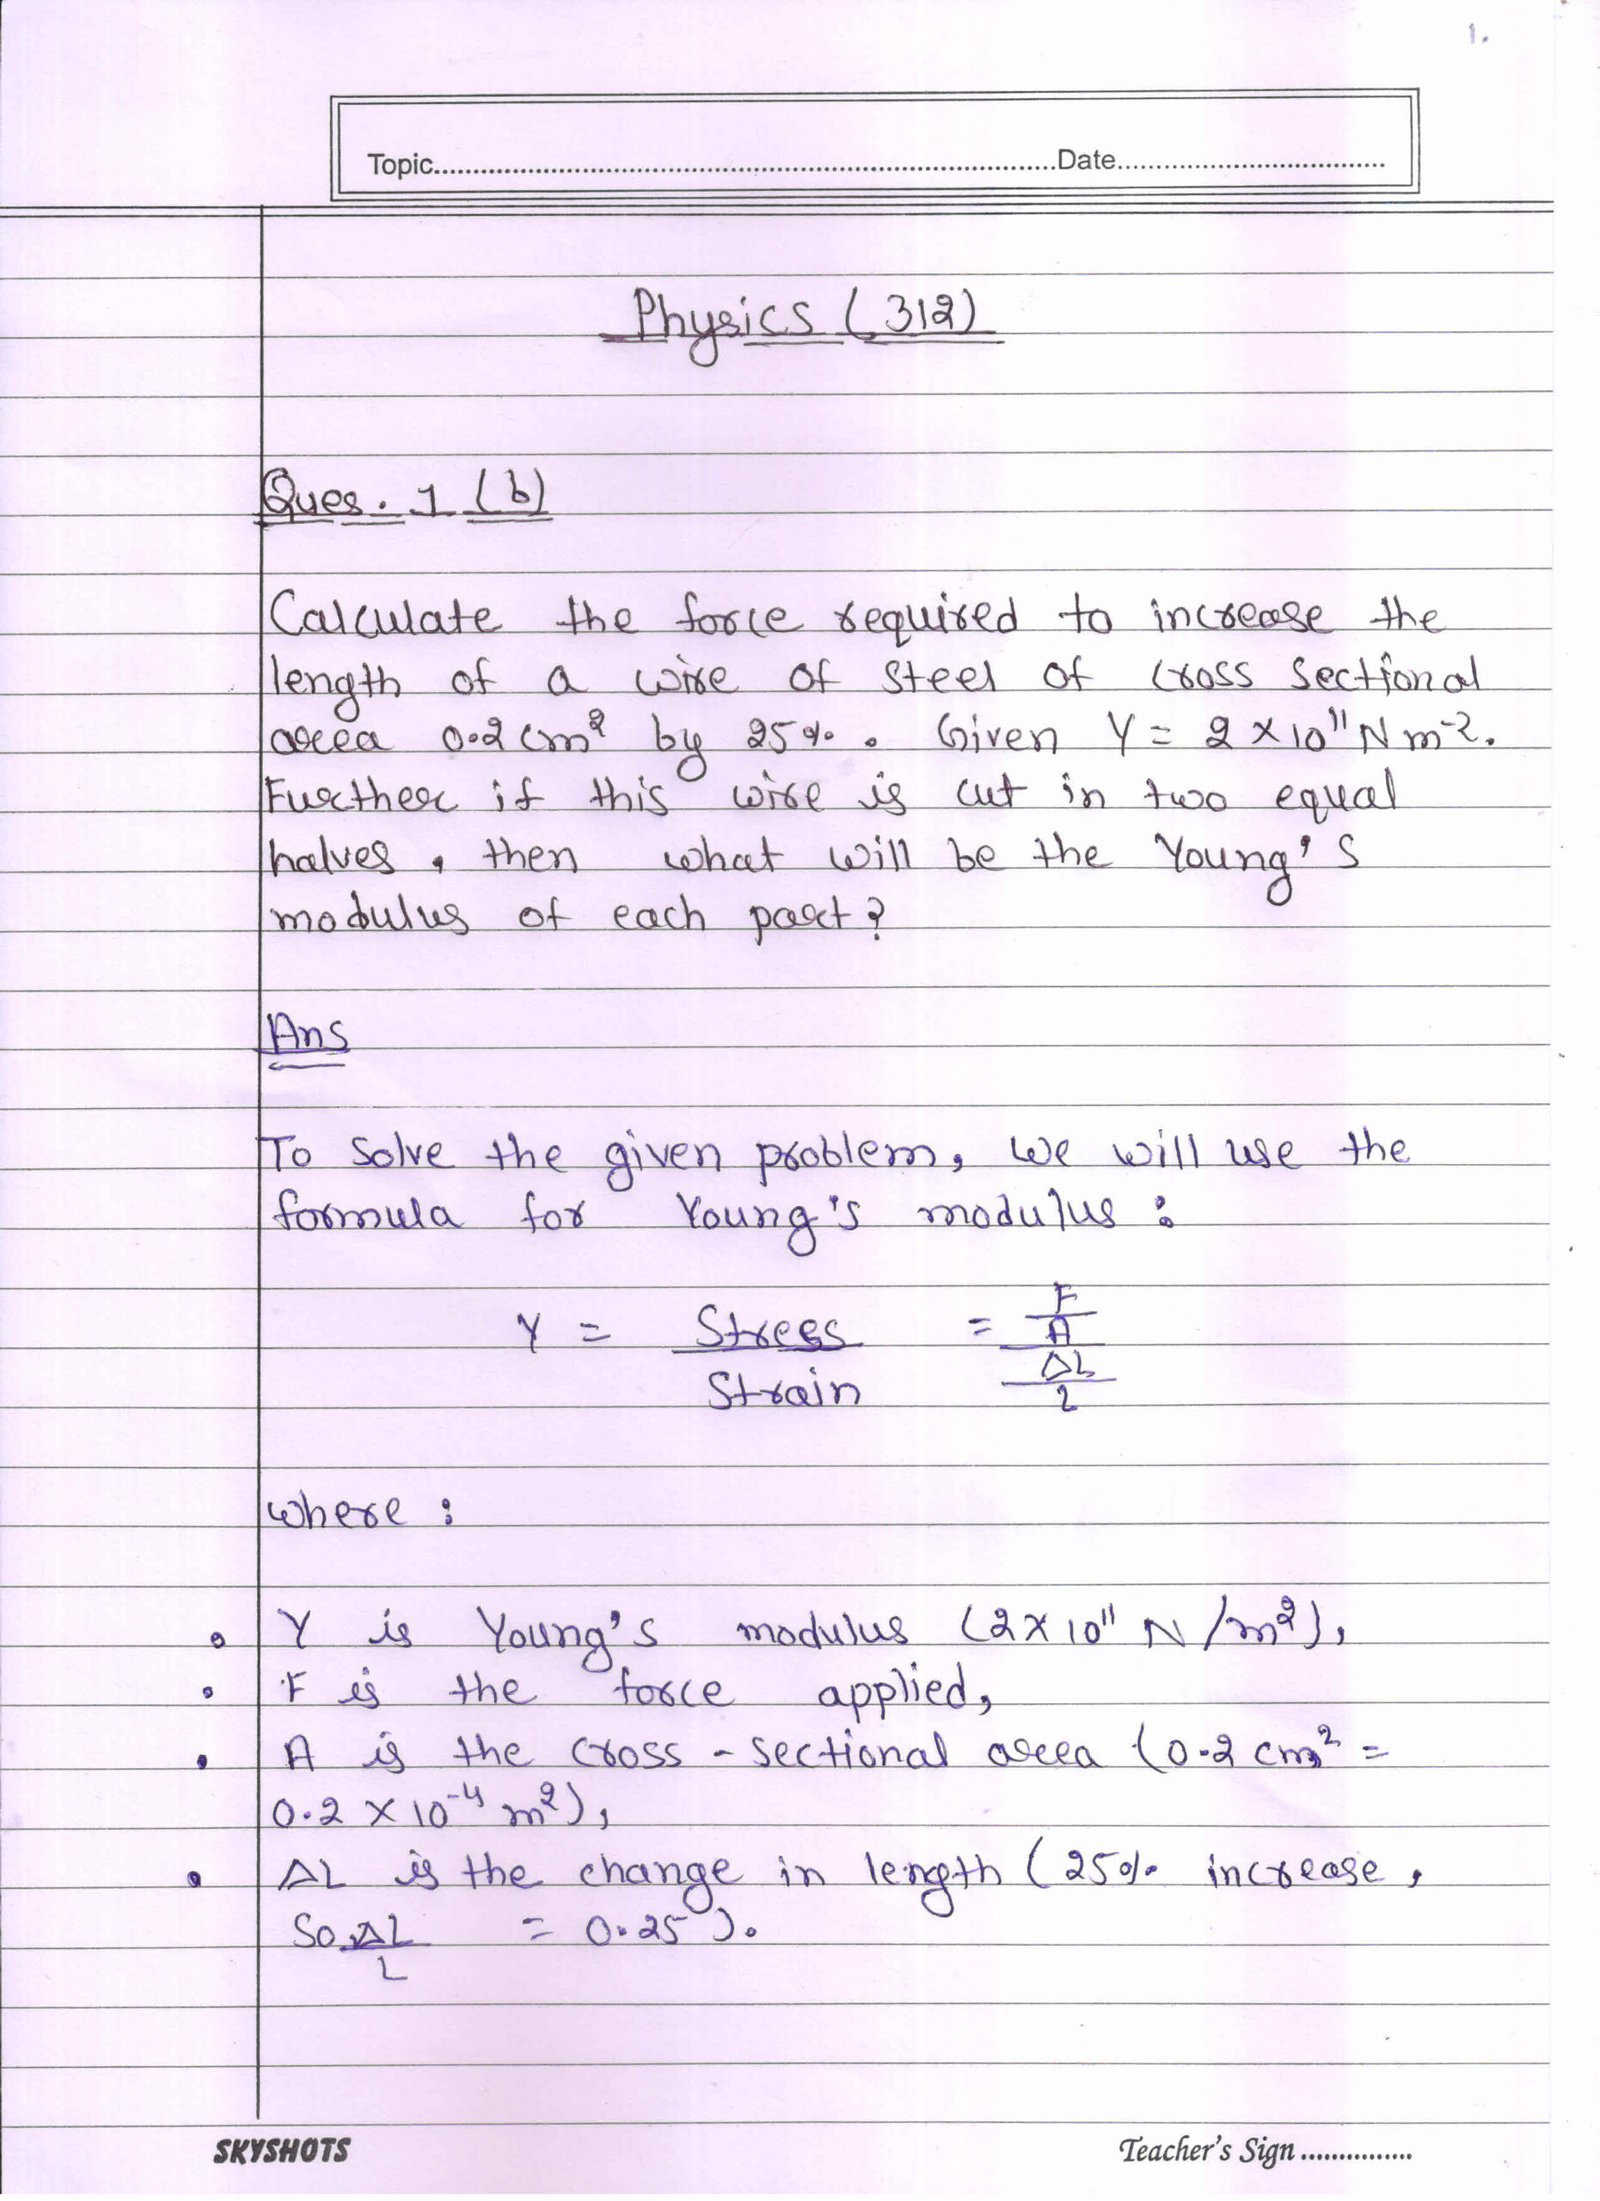 1.
Topic..............................Date..............................
Physics (312)
Ques. 1 (b)
Calculate the force required to increase the
length of a wire of steel of cross sectional
area 0.2 cm² by 25%. Given Y = 2 × 10¹¹ N m⁻².
Further if this wire is cut in two equal
halves, then what will be the Young's
modulus of each part?
Ans
To solve the given problem, we will use the
formula for Young's modulus :
Y = Stress / Strain = (F / A) / (ΔL / L)
where :
• Y is Young's modulus (2 × 10¹¹ N/m²),
• F is the force applied,
• A is the cross-sectional area (0.2 cm² =
0.2 × 10⁻⁴ m²),
• ΔL is the change in length (25% increase,
So ΔL / L = 0.25).
SKYSHOTS
Teacher's Sign ...............